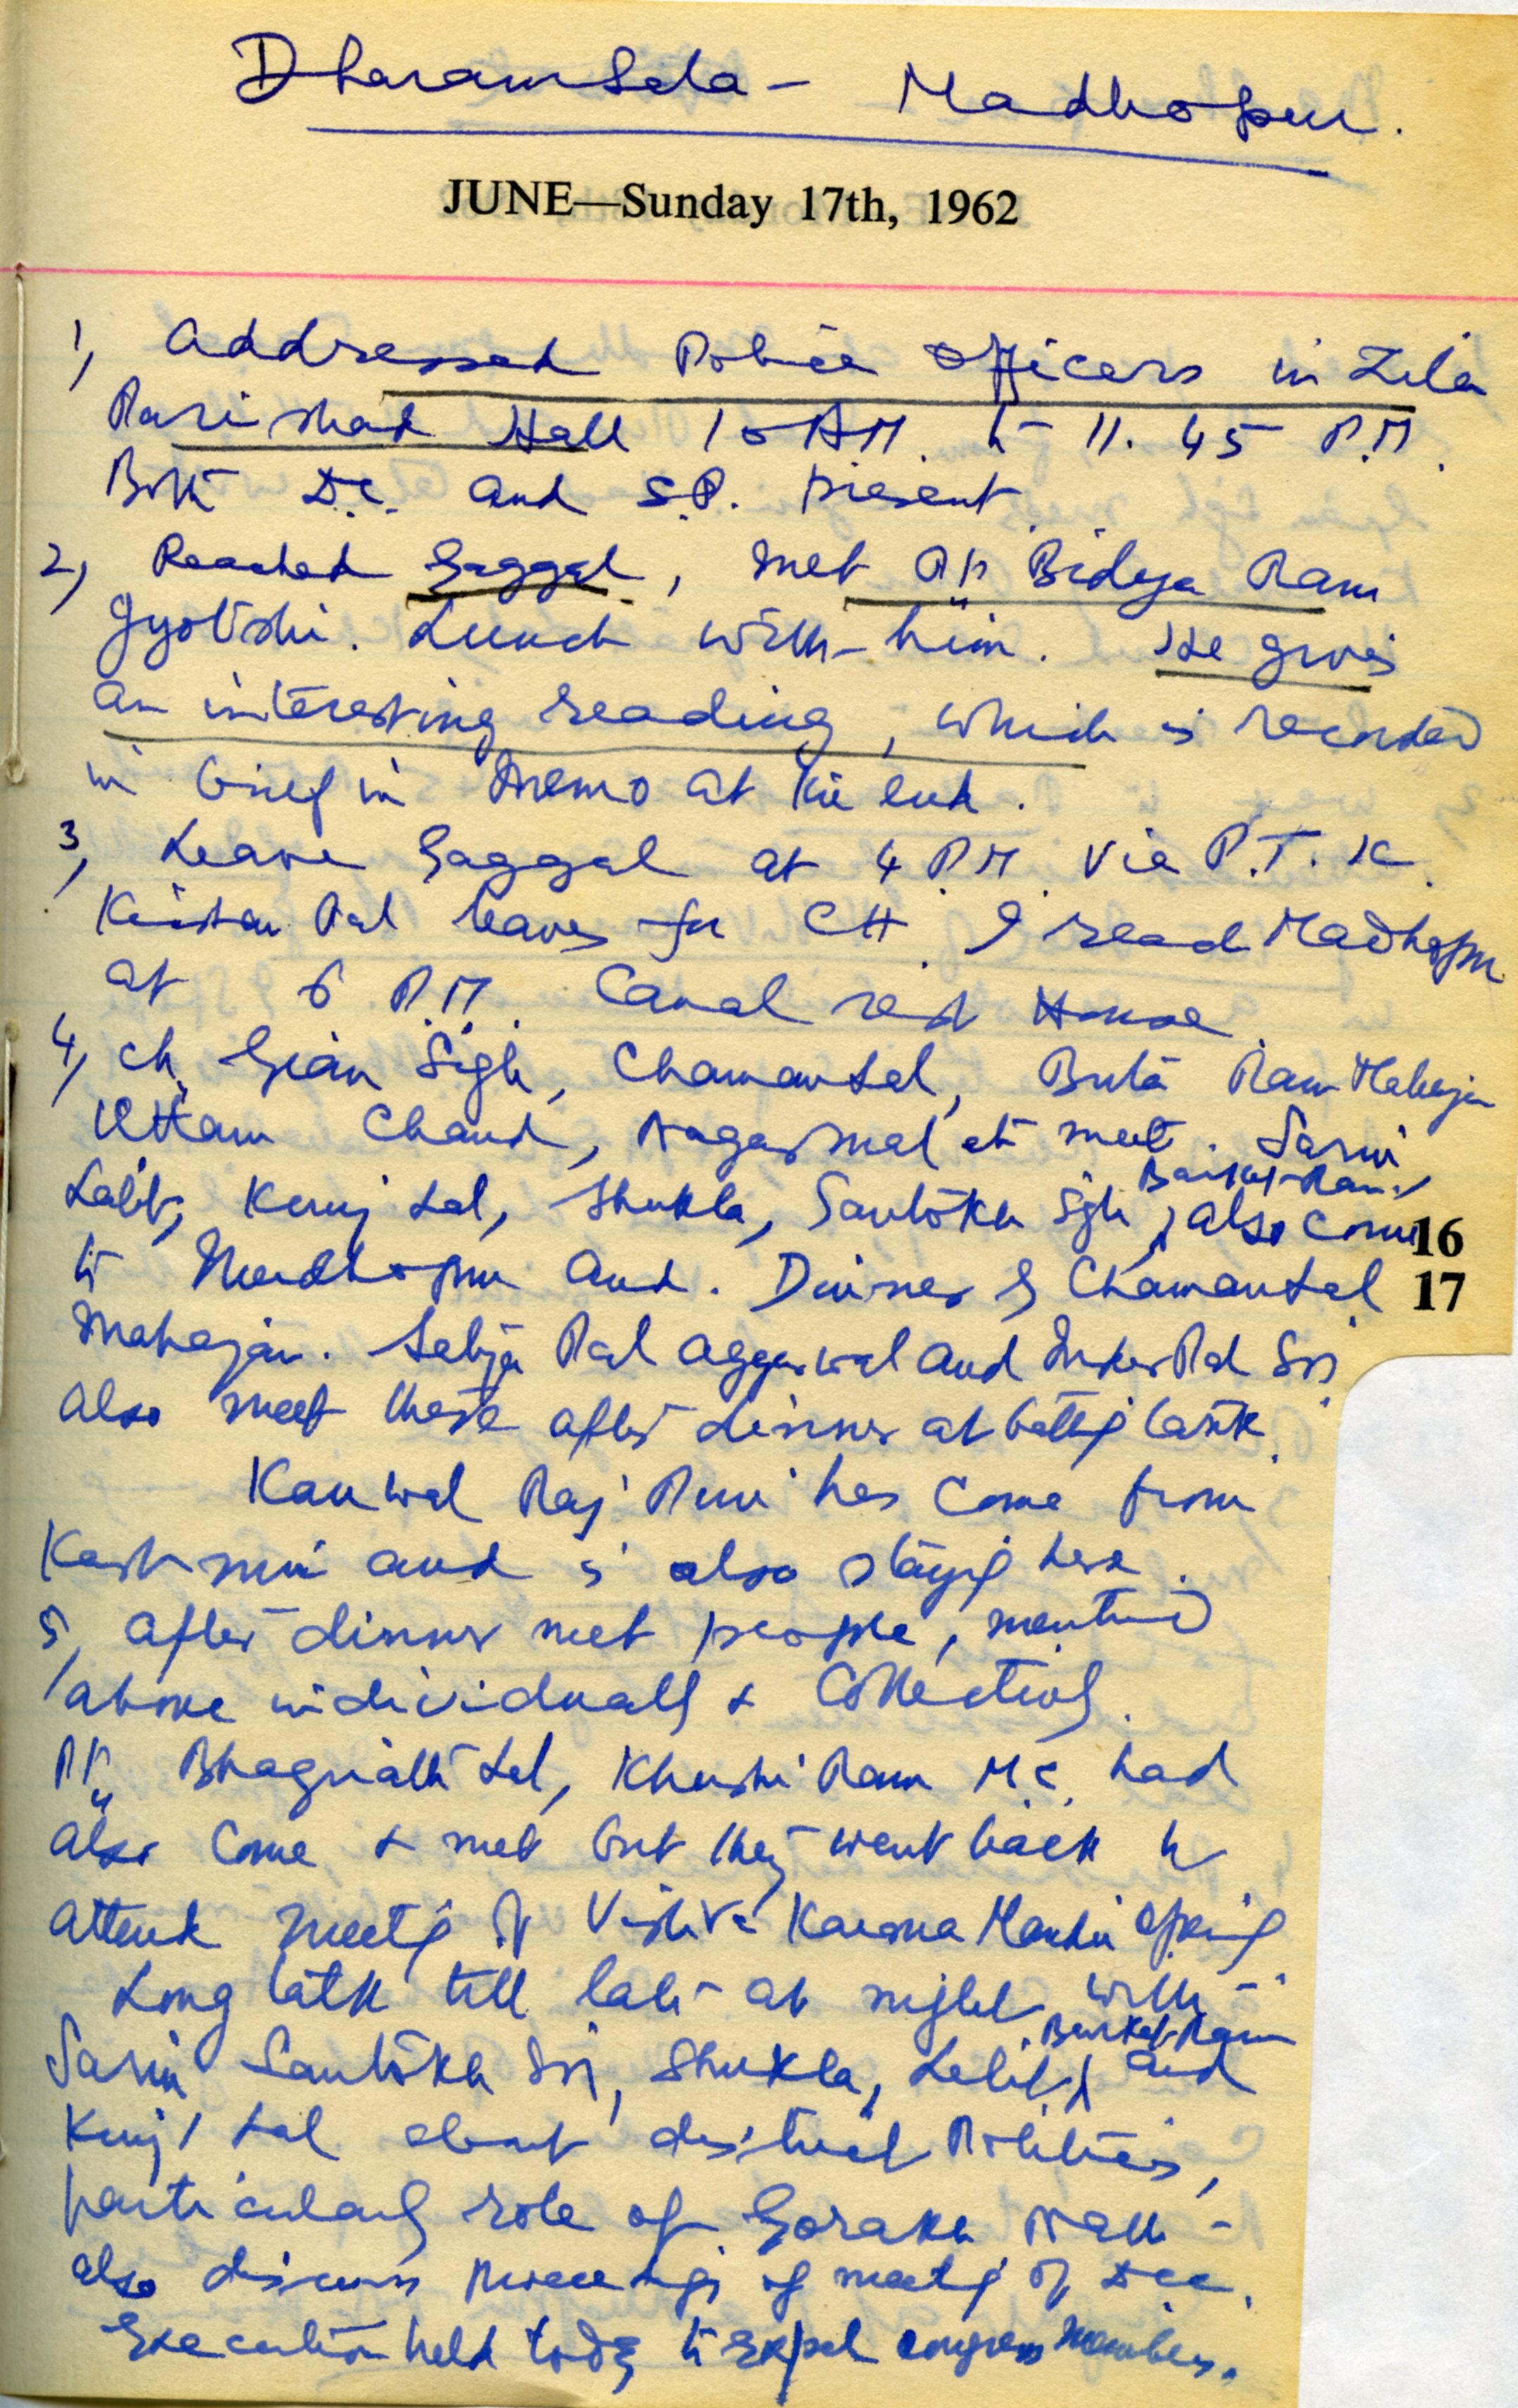 Dharamsala - Madhopur.
JUNE—Sunday 17th, 1962
1, Addressed Police officers in Zila
Parishad Hall 10 AM. to 11.45 P.M.
Both D.C. and S.P. present.
2, Reached Gaggal, met Pt. Bidya Ram
Jyotishi. Lunch with him. He gives
an interesting reading, which is recorded
in brief in Memo at the end.
3, Leave Gaggal at 4 P.M. via P.T.K.
Krishan Pal leaves for CH. I reach Madhopur
at 6 P.M. Canal rest House.
4, Ch. Gian Sigh, Chaman Lal, Buta Ram Mahajan
Uttam Chand, Nagar Mal etc meet. Sarin
Barkat Ram,
Lalit, Kunj Lal, Shukla, Santokh Sigh, also come
16
to Madhopur and. Dinner by Chaman Lal
17
Mahajan. Satya Pal Aggarwal and Inder Pal Sigh
also meet there after dinner at
Kanwal Raj Puri has come from
Kashmir and is also stayig here.
5, After dinner meet people, mentioned
above individually & Collectively.
Pt. Bhagirath Lal, Khushi Ram M.C. had
also come & met but they went back to
attend meetg of Vishva Karma Mandir
Long talk till late at night with
Barkat Ram
Sarin Santokh Sigh, Shukla, Lalit, and
Kunj Lal about district Politics,
particularly role of Gorakh Nath -
also discuss proceedings of meetg of DCC.
Executive held today to expel congress Members.